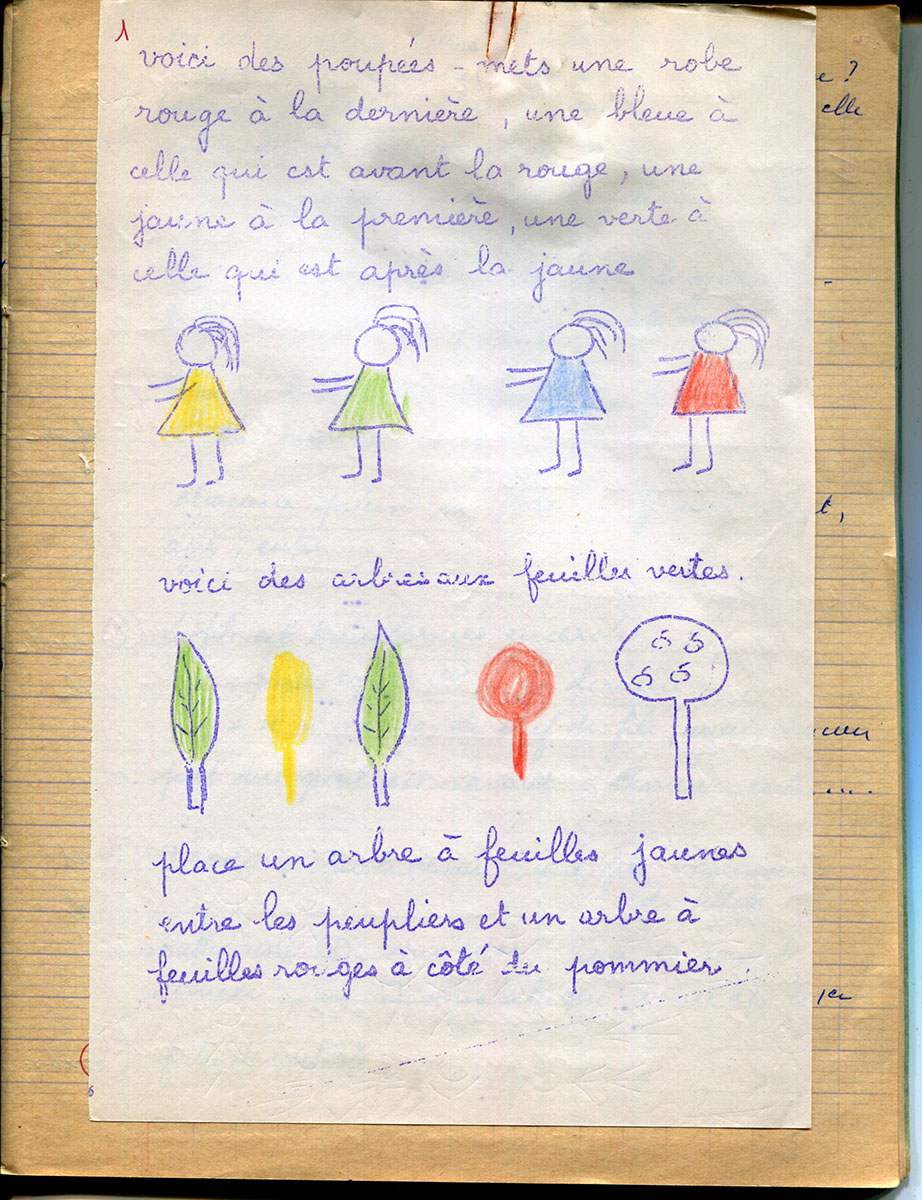 1
voici des poupées - mets une robe
rouge à la dernière, une bleue à
celle qui est avant la rouge, une
jaune à la première, une verte à
celle qui est après la jaune
e ?
elle
t,
voici des arbres aux feuilles vertes.
place un arbre à feuilles jaunes
entre les peupliers et un arbre à
feuilles rouges à côté du pommier.